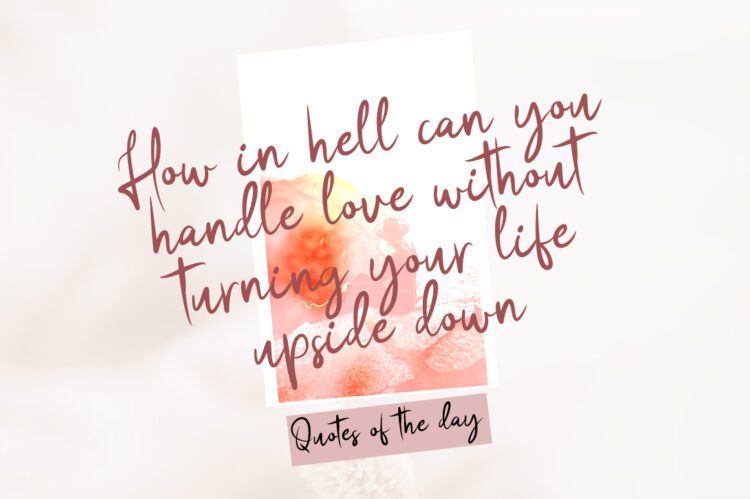 How in hell can you
handle love without
turning your life
upside down
Quotes of the day